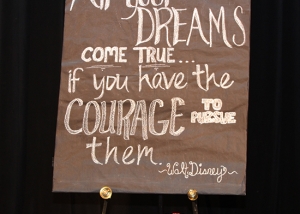 All your
DREAMS
COME TRUE...
if you have the
COURAGE TO PURSUE
them.
~Walt Disney~